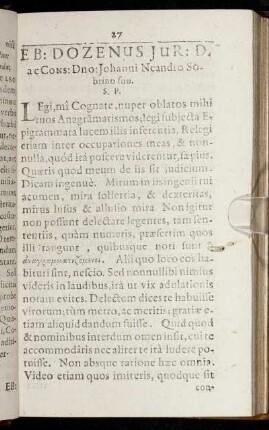 27
EB: DOZENUS JUR: D.
ac CONS: Dno: Johanni Neandro So-
brino suo.
S. P.
LEgi, mi Cognate, nuper oblatos mihi
tuos Anagrāmatismos; legi subjecta E-
pigrammata lucem illis inferentia. Relegi
etiam inter occupationes meas, & non-
nulla, quód itá poscere viderentur, sæpius.
Quæris quod meum de iis sit judicium.
Dicam ingenuè. Mirum in iis ingenii tui
acumen, mira sollertia, & dexteritas,
mirus lusus & allusio mira Non igitur
non possunt delectare legentes, tam sen-
tentiis, quàm numeris, præsertim quos
illi tangunt, quibusque noti sunt
Alii quo loco eos ha-
bituri sint, nescio. Sed nonnullibi nimius
videris in laudibus, itá ut vix adulationis
notam evites. Delectum dices te habuisse
virorum; tùm metro, ac meritis; gratiæ e-
tiam aliquid dandum fuisse. Quid quod
& nominibus interdum omen insit, cui te
accommodâris nec aliter te itá ludere po-
tuisse. Non absque ratione hæc omnia.
Video etiam quos imiteris, quodque sit
con-
EB: